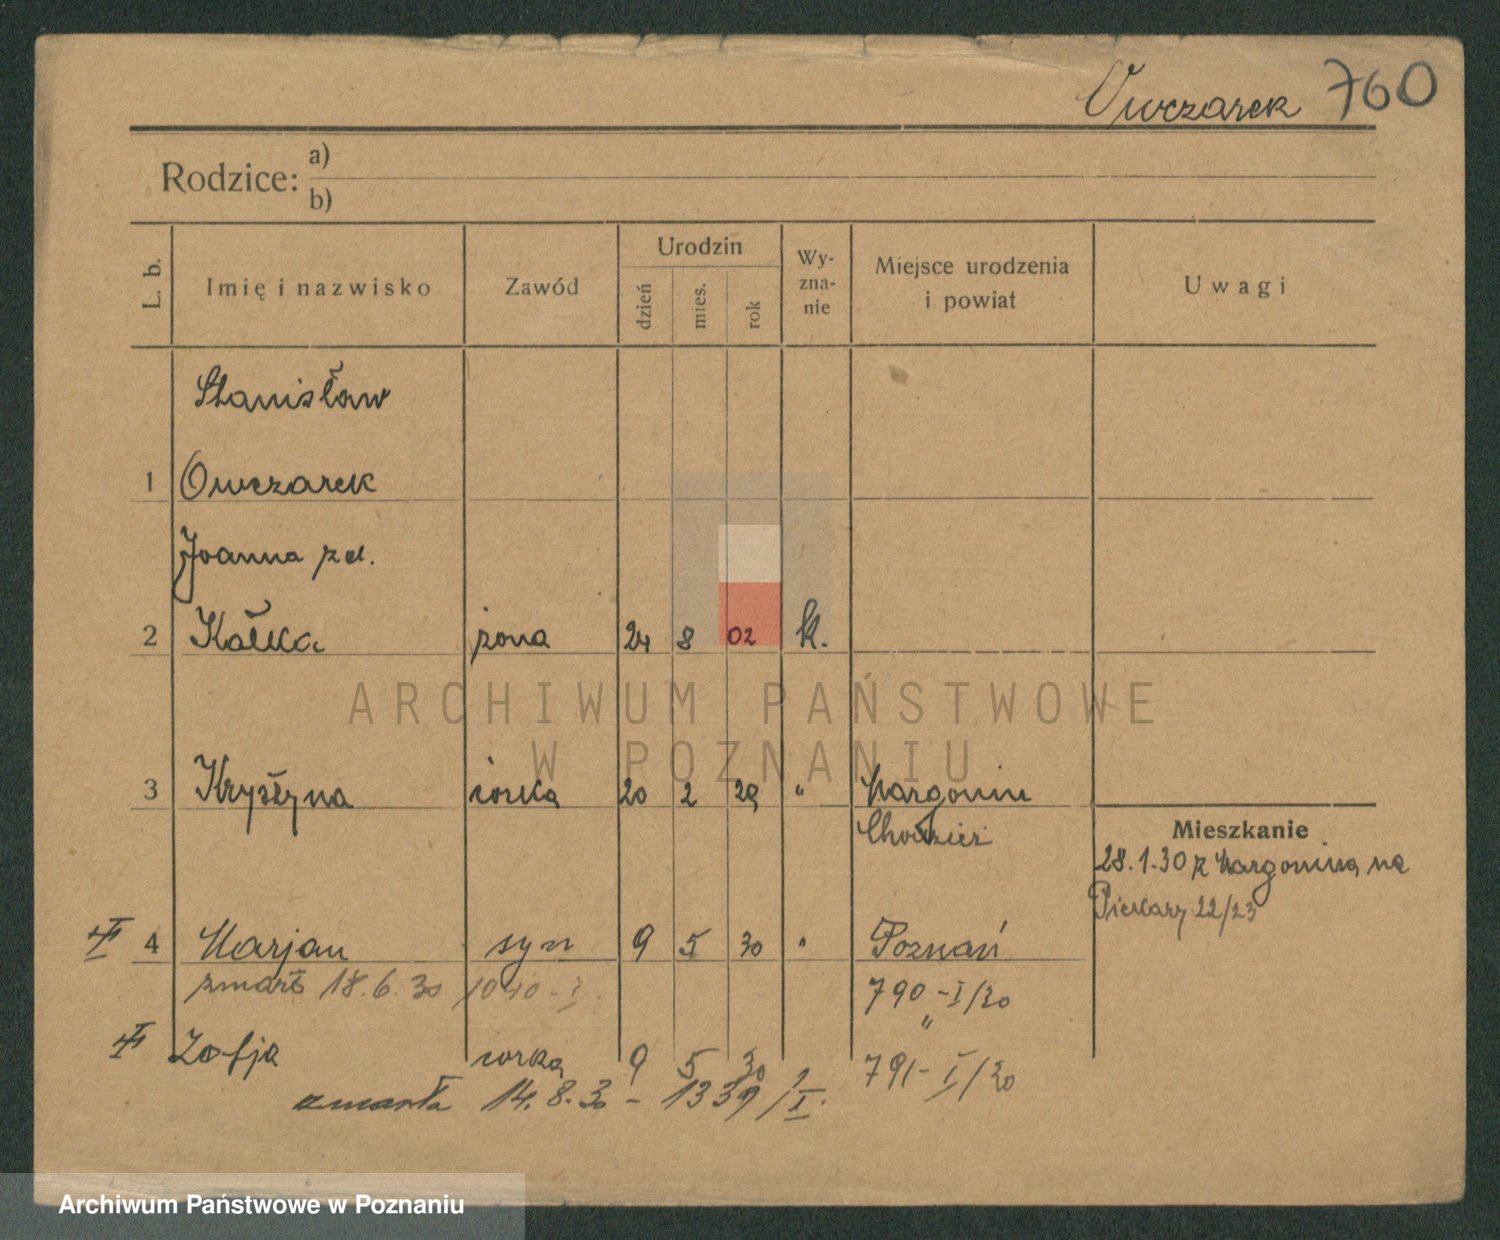 Owczarek 760
Rodzice: a)
b)
L. b. Imię i nazwisko Zawód Urodzin dzień mies. rok Wy-zna-nie Miejsce urodzenia i powiat Uwagi
Stanisław
1 Owczarek
Joanna zd.
2 Kałka żona 24 8 02 k.
ARCHIWUM PAŃSTWOWE
W POZNANIU
3 Krystyna córka 20 2 29 " Margonin
Chodzież
Mieszkanie
28.1.30 z Margonina na
Piekary 22/23
4 Marjan syn 9 5 30 " Poznań
zmarł 18.6.30 1040-I 790-I/30
"
Zofja córka 9 5 30 791-I/30
zmarła 14.8.30 - 1339/I.
Archiwum Państwowe w Poznaniu